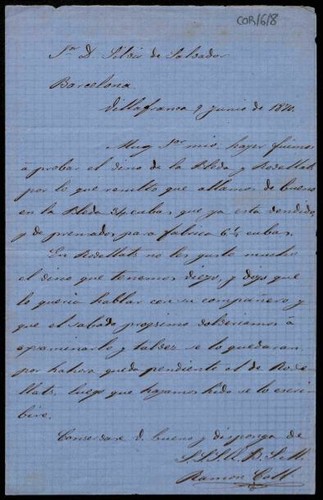 COR/6/8
Sr. D. Silvio de Salvador
Barcelona
Villafranca 9 junio de 1870.
Muy Sor mio, hayer fuimos
a probar el vino de la Bleda y Rodellats
por lo que resulto que allamos de bueno
en la Bleda 24 cubas, que ya esta vendido,
y de prensado, para fabrica 6½ cubas.
En Rodellats no les gusto mucho
el vino que tenemos, diego, y dijo que
lo queria hablar con su compañero y
que el sabado progsimo bolberiamos á
esaminarlo y talvez se lo quedaran
por haora queda pendiente el de Rode-
llats, luego que hayamos hido se lo escri-
biré.
Conservese V. bueno y disponga de
S.S.S.Q.B.S.M.
Ramon Coll